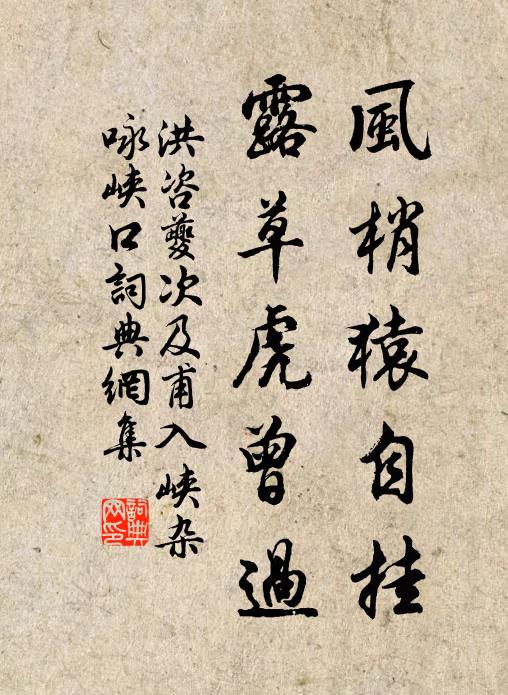 風梢猿自挂
露草虎曾過
洪咨夔次及甫入峡杂
咏峡口詞典網集
詞典
网印